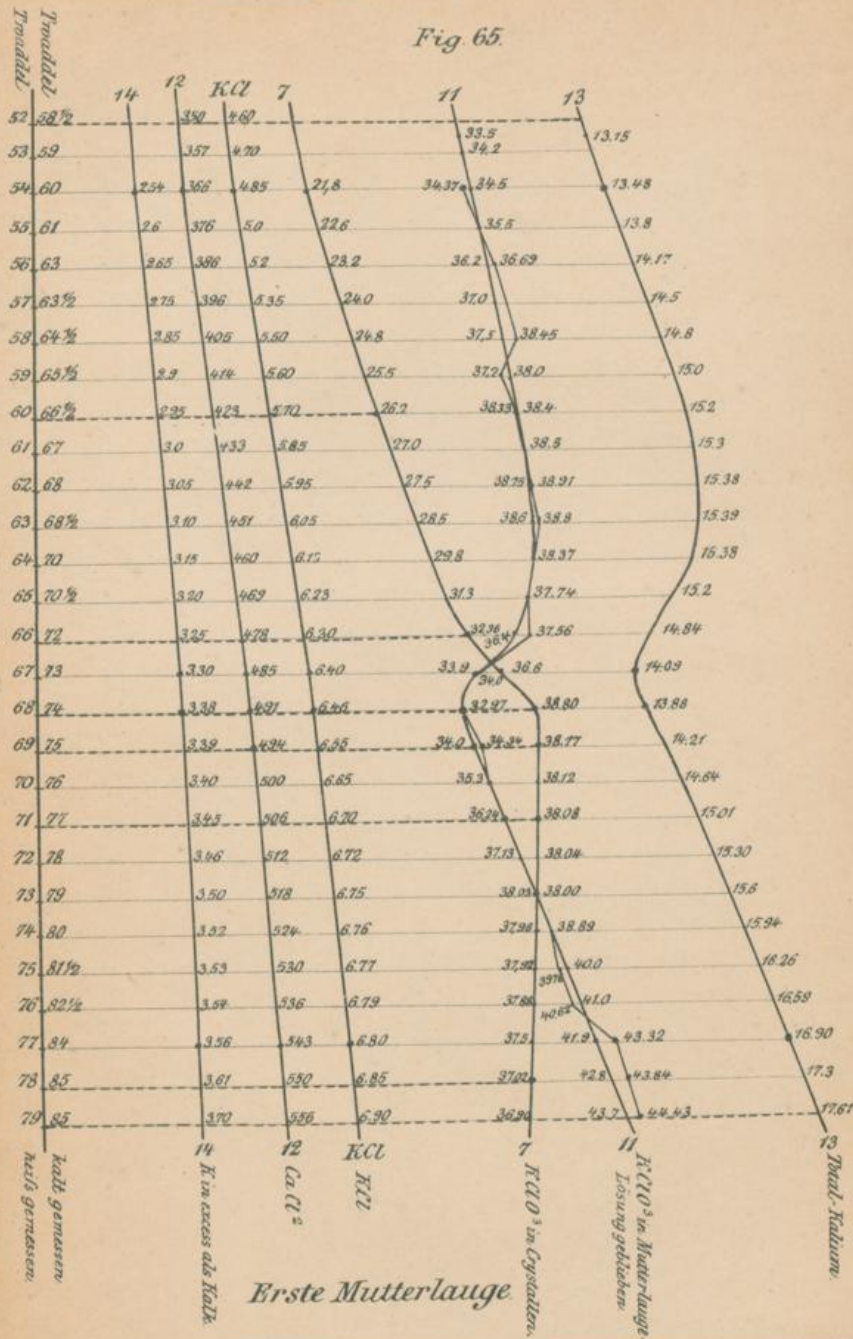 Fig. 65.
Twaddel
Twaddel
14 12 KCl 7 11 13
52 58½ 350 4.60 33.5 13.15
53 59 357 4.70 34.2
54 60 2.54 366 4.85 21,8 34.37 34.5 13.48
55 61 2.6 376 5.0 22.6 35.5 13.8
56 63 2.65 386 5.2 23.2 36.2 36.69 14.17
57 63½ 2.75 396 5.35 24.0 37.0 14.5
58 64½ 2.85 405 5.50 24.8 37.5 38.45 14.8
59 65½ 2.9 414 5.60 25.5 37.2 38.0 15.0
60 66½ 2.95 423 5.70 26.2 38.33 38.4 15.2
61 67 3.0 433 5.85 27.0 38.5 15.3
62 68 3.05 442 5.95 27.5 38.75 38.91 15.38
63 68½ 3.10 451 6.05 28.5 38.6 38.8 15.39
64 70 3.15 460 29.8 38.37 15.38
65 70½ 3.20 469 6.23 31.3 37.74 15.2
66 72 3.25 478 6.30 32.36 37.56 14.84
67 73 3.30 485 6.40 33.9 34.0 36.6 14.09
68 74 3.38 491 6.46 32.97 38.80 13.88
69 75 3.39 494 6.55 34.0 34.34 38.17 14.21
70 76 3.40 500 6.65 35.3 38.12 14.64
71 77 3.45 506 6.70 36.24 38.08 15.01
72 78 3.46 512 6.72 37.13 38.04 15.30
73 79 3.50 518 6.75 38.05 38.00 15.6
74 80 3.52 524 6.76 37.96 38.89 15.94
75 81½ 3.53 530 6.77 37.92 40.0 16.26
76 82½ 3.54 536 6.79 37.86 40.62 41.0 16.59
77 84 3.56 543 6.80 37.5 41.9 43.32 16.90
78 85 3.61 550 6.85 37.02 42.8 43.84 17.3
79 85 3.70 556 6.90 36.90 43.7 44.43 17.61
14 12 KCl 7 11 13
heifs gemessen.
kalt gemessen
K in excess als Kalk
Ca Cl²
KCl
KClO³ in Crystallen.
KClO³ in Mutterlauge
Lösung geblieben
Total-Kalium.
Erste Mutterlauge